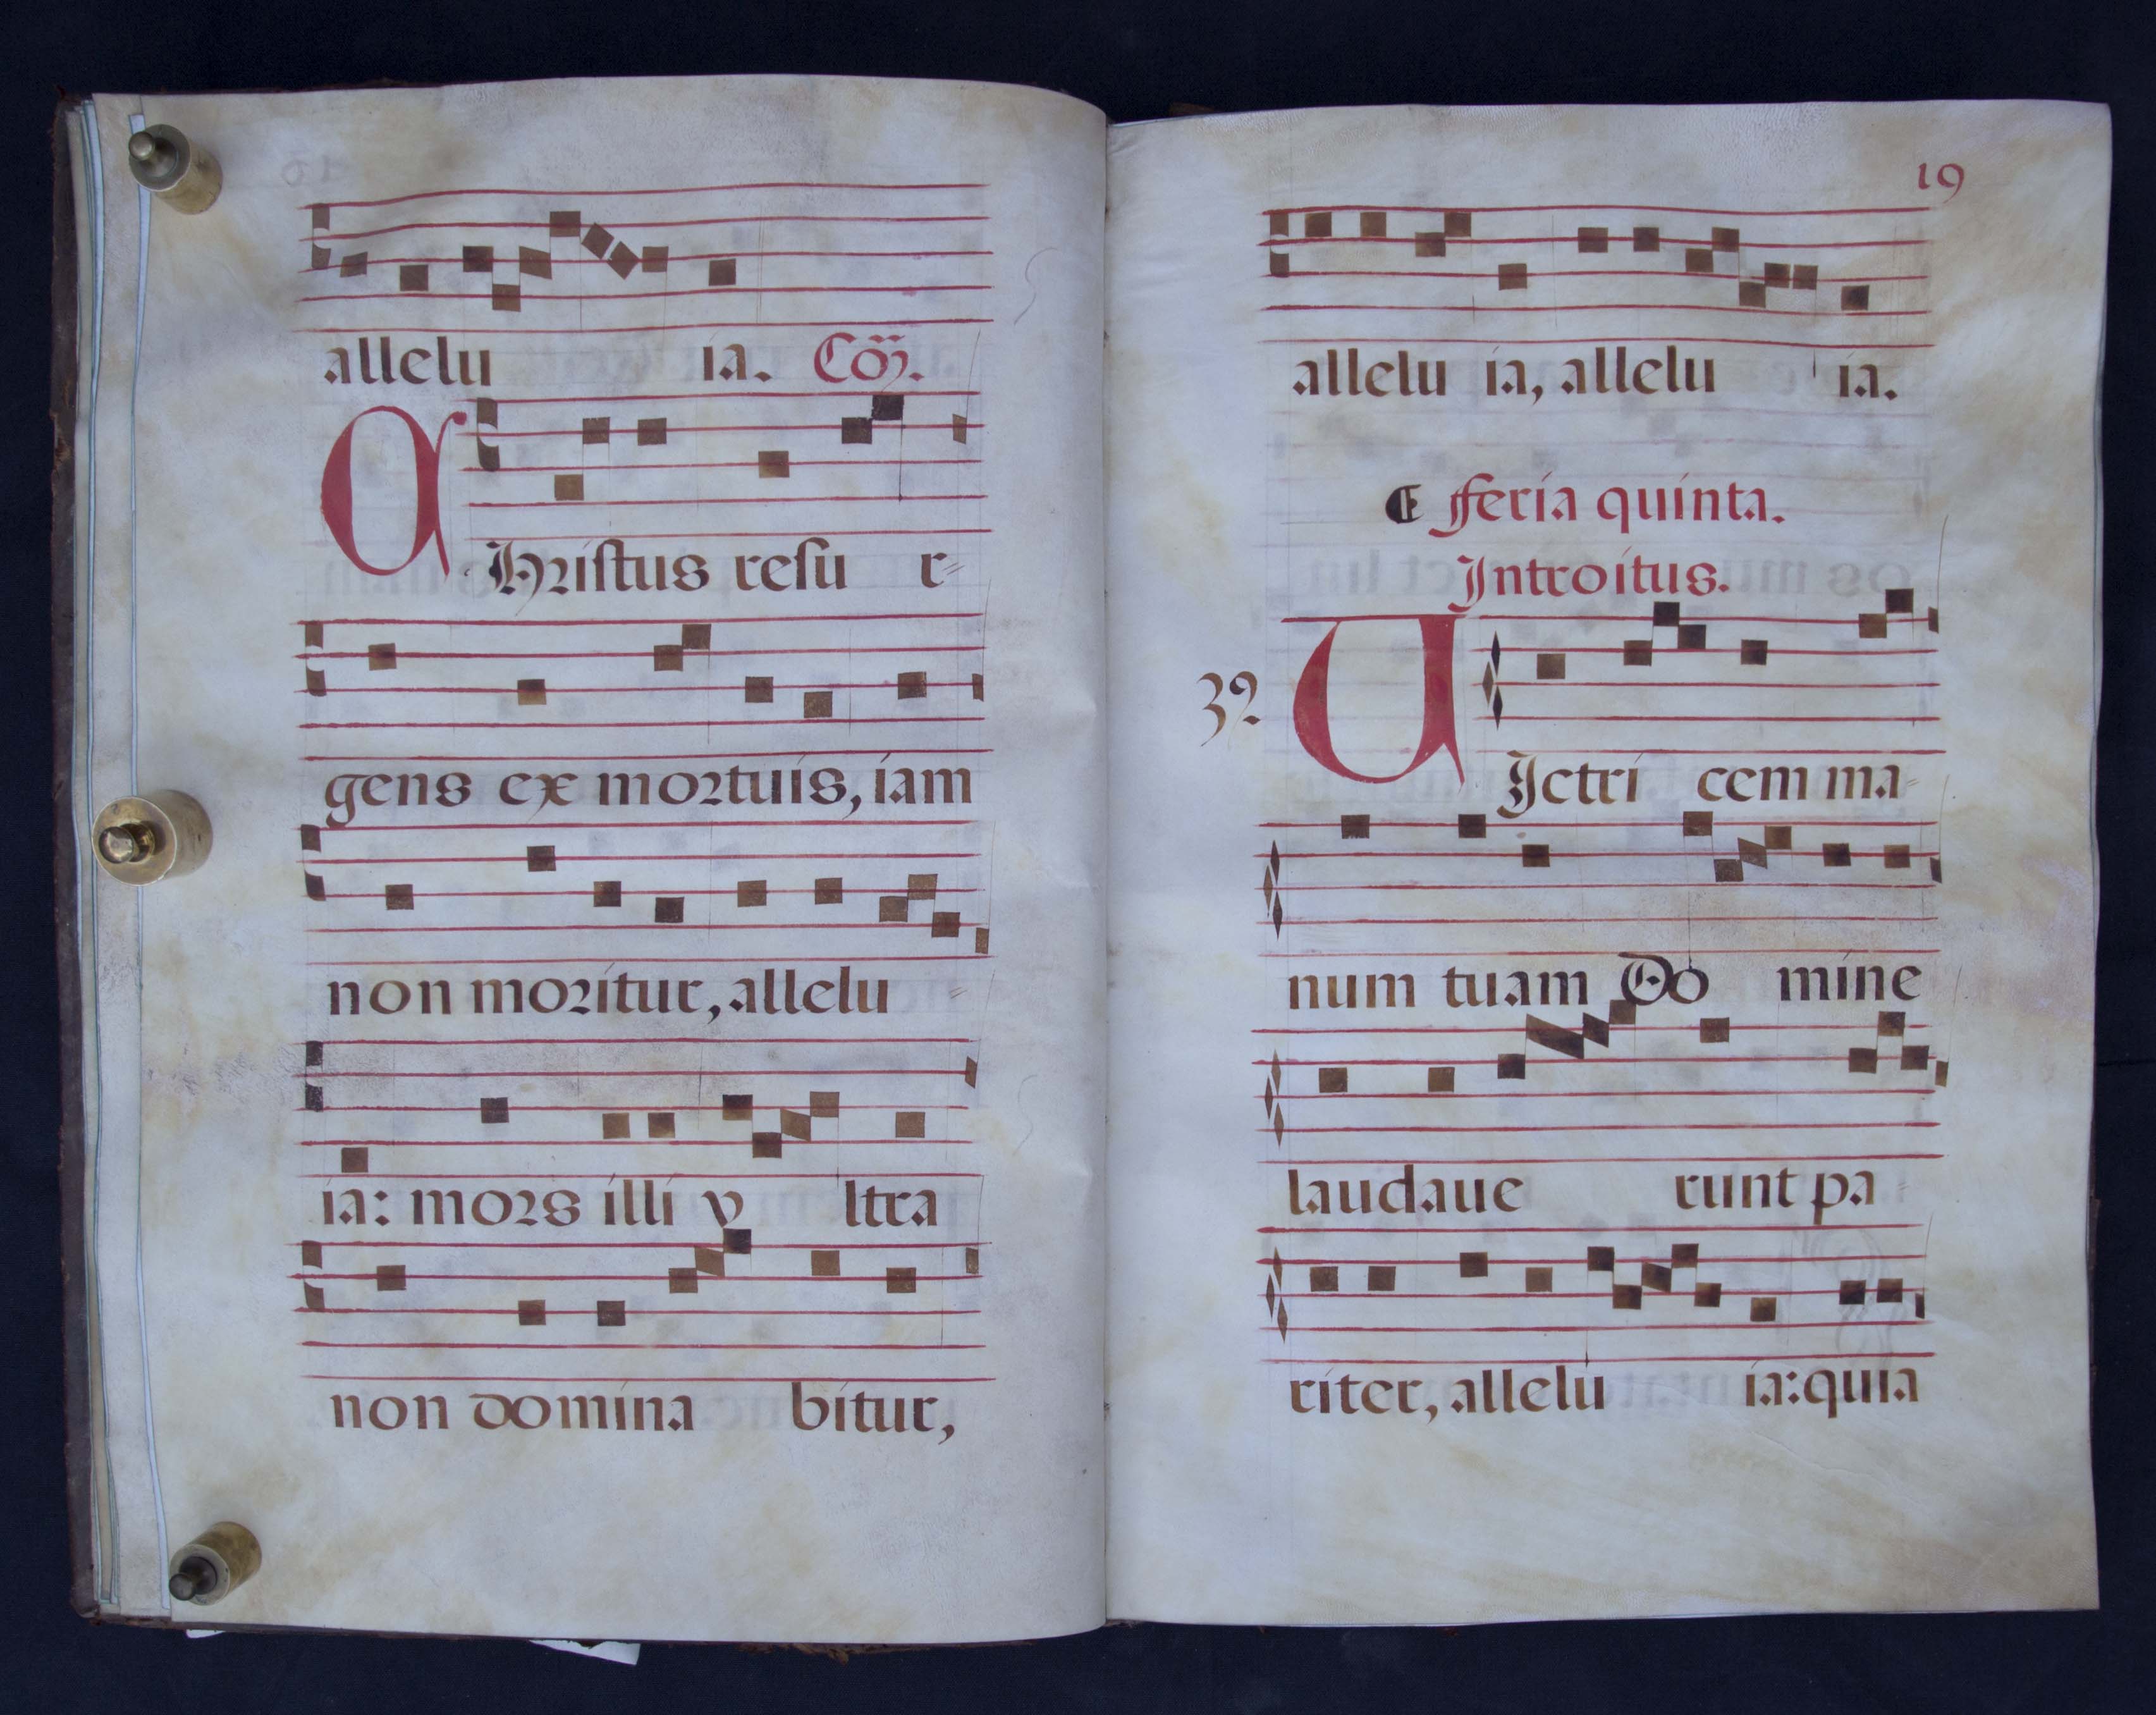 allelu ia. Cōỹ.
CHristus resu r=
gens ex mortuis, iam
non moritur, allelu =
ia: mors illi v ltra
non domina bitur,
19
allelu ia, allelu ia.
¶ Feria quinta.
Introitus.
39
VIctri cem ma-
num tuam Do mine
laudaue runt pa =
riter, allelu ia: quia